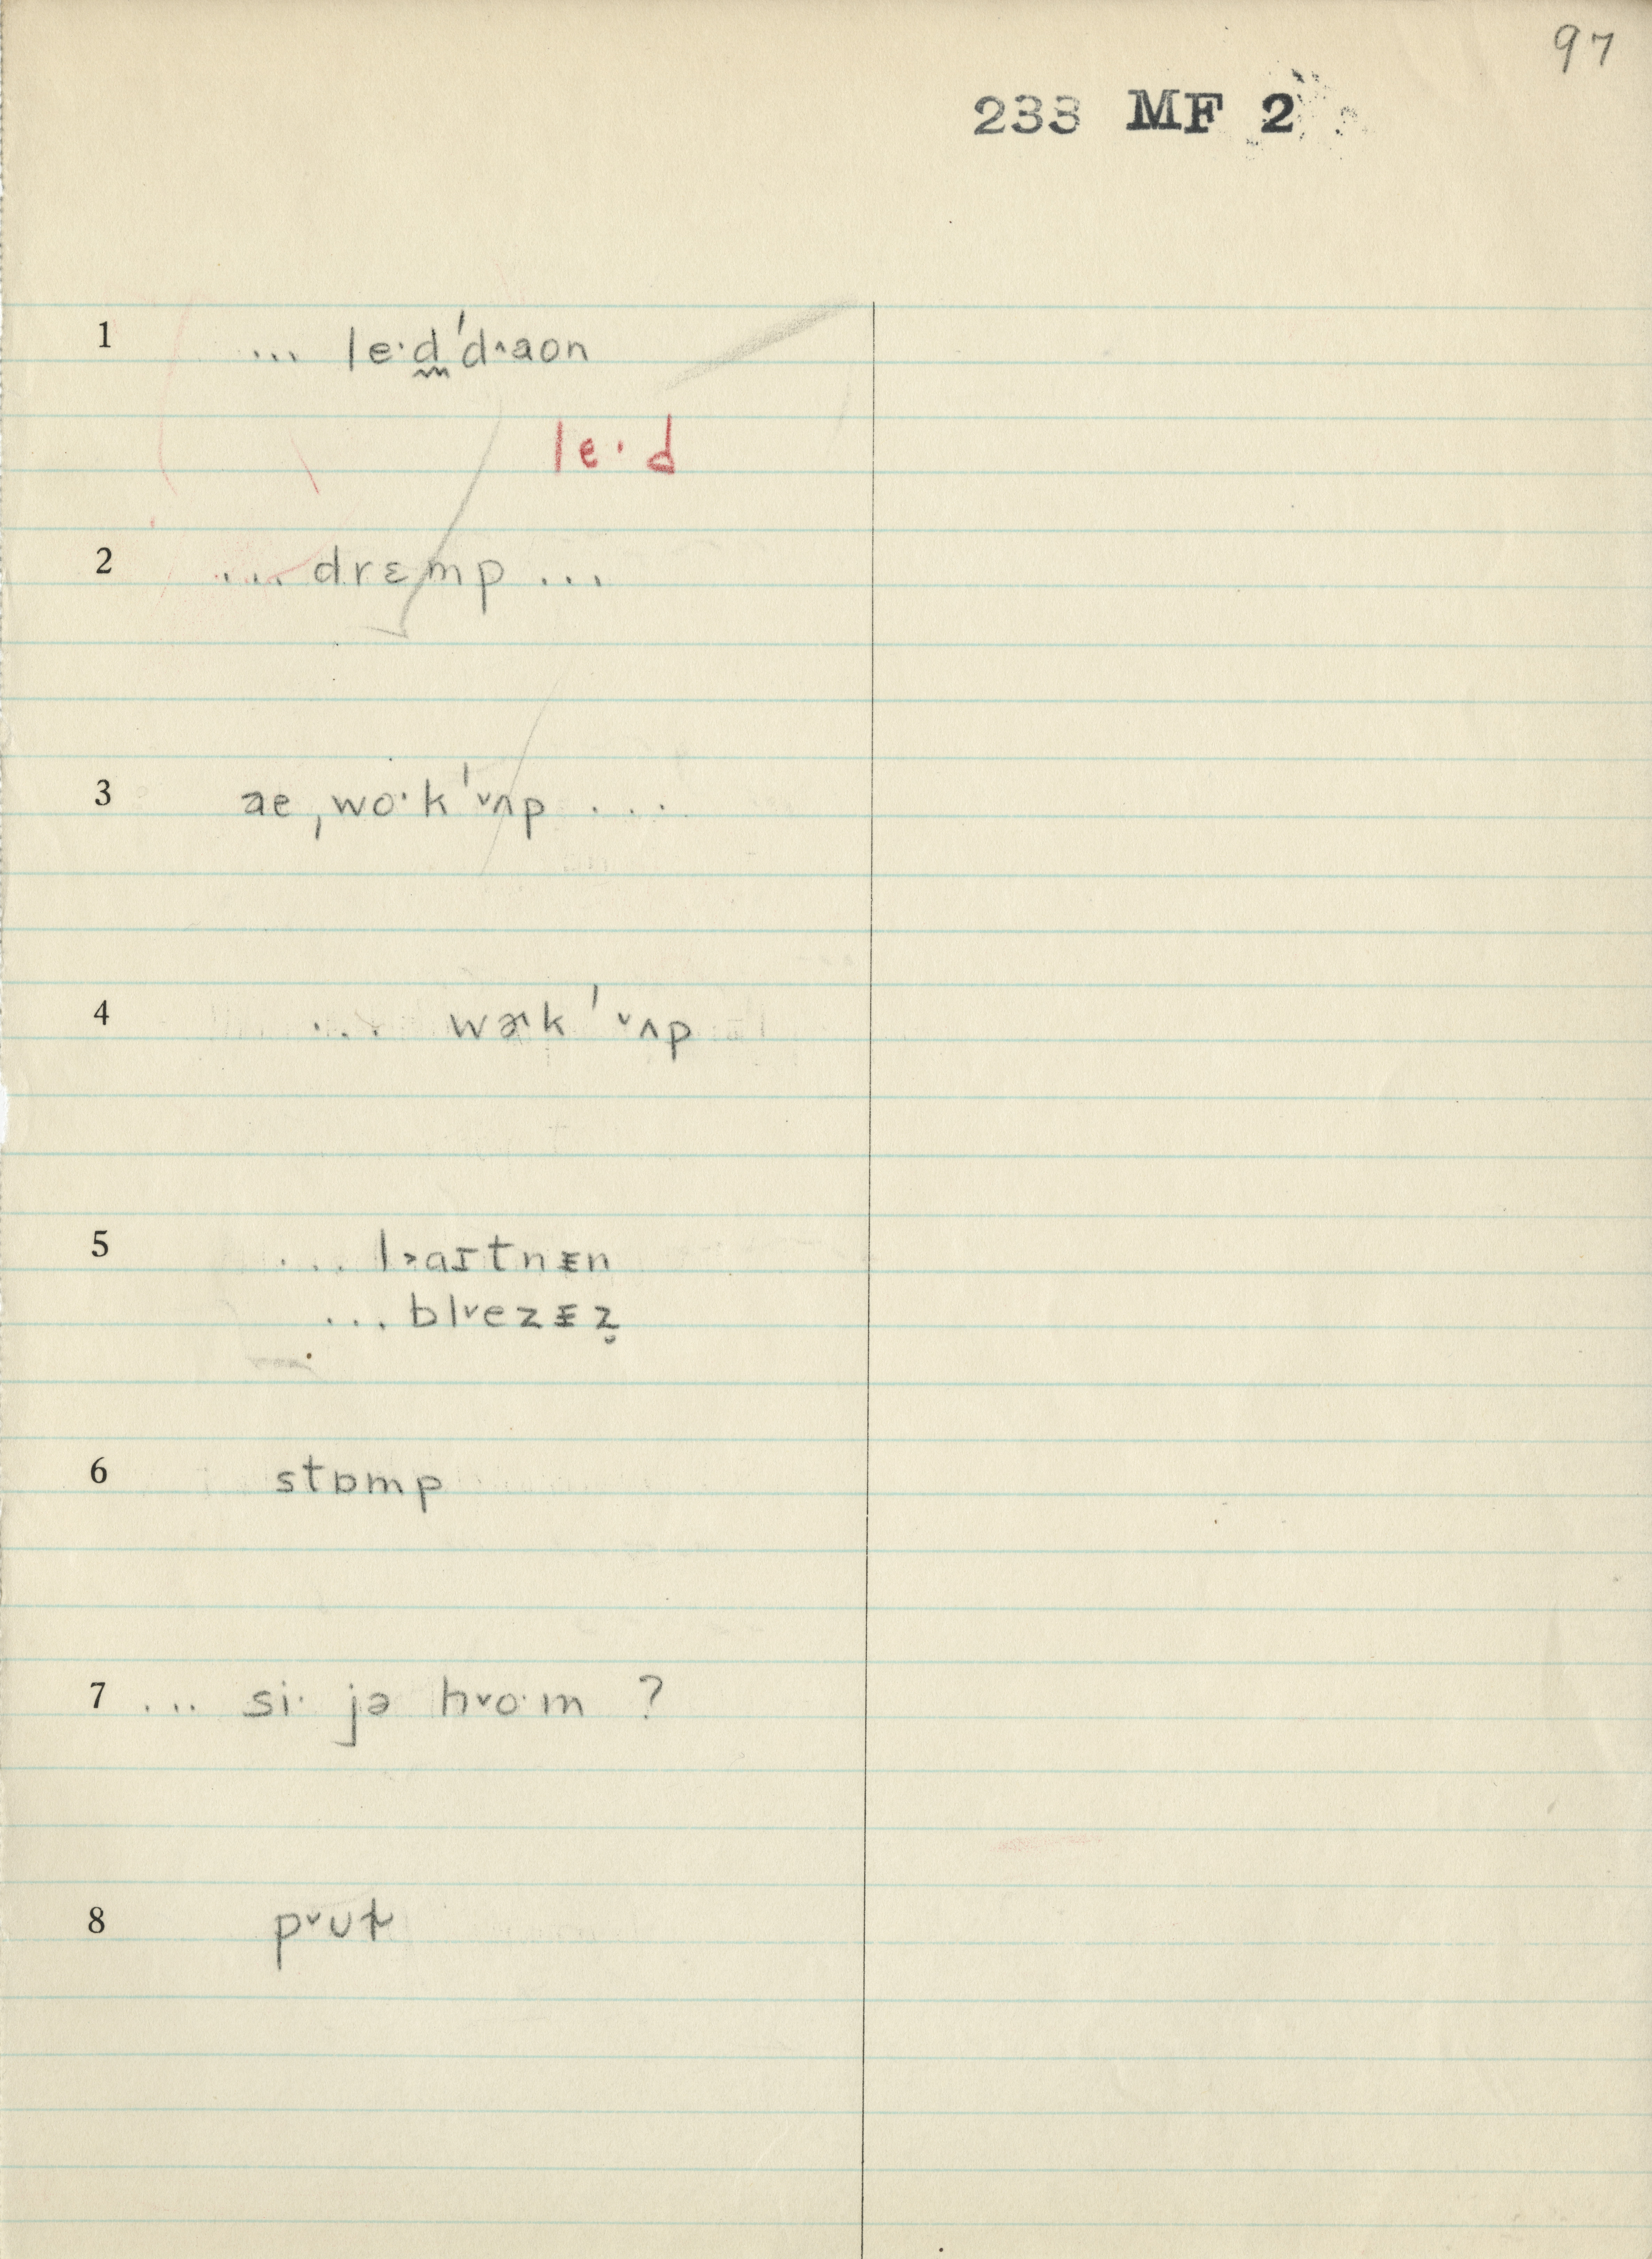 97
233 MF 2
1 ... le·d̰ˈd˄aon
le·d
2 ... drɛmp ...
3 ae ˌwo·kˈ˅ʌp ...
4 ... wɚkˈ˅ʌp
5 ... l˃aɪtnᵻn
... bl˅ezᵻz̬
6 stɒmp
7 ... si· jə h˅o·m ?
8 p˅ʊt